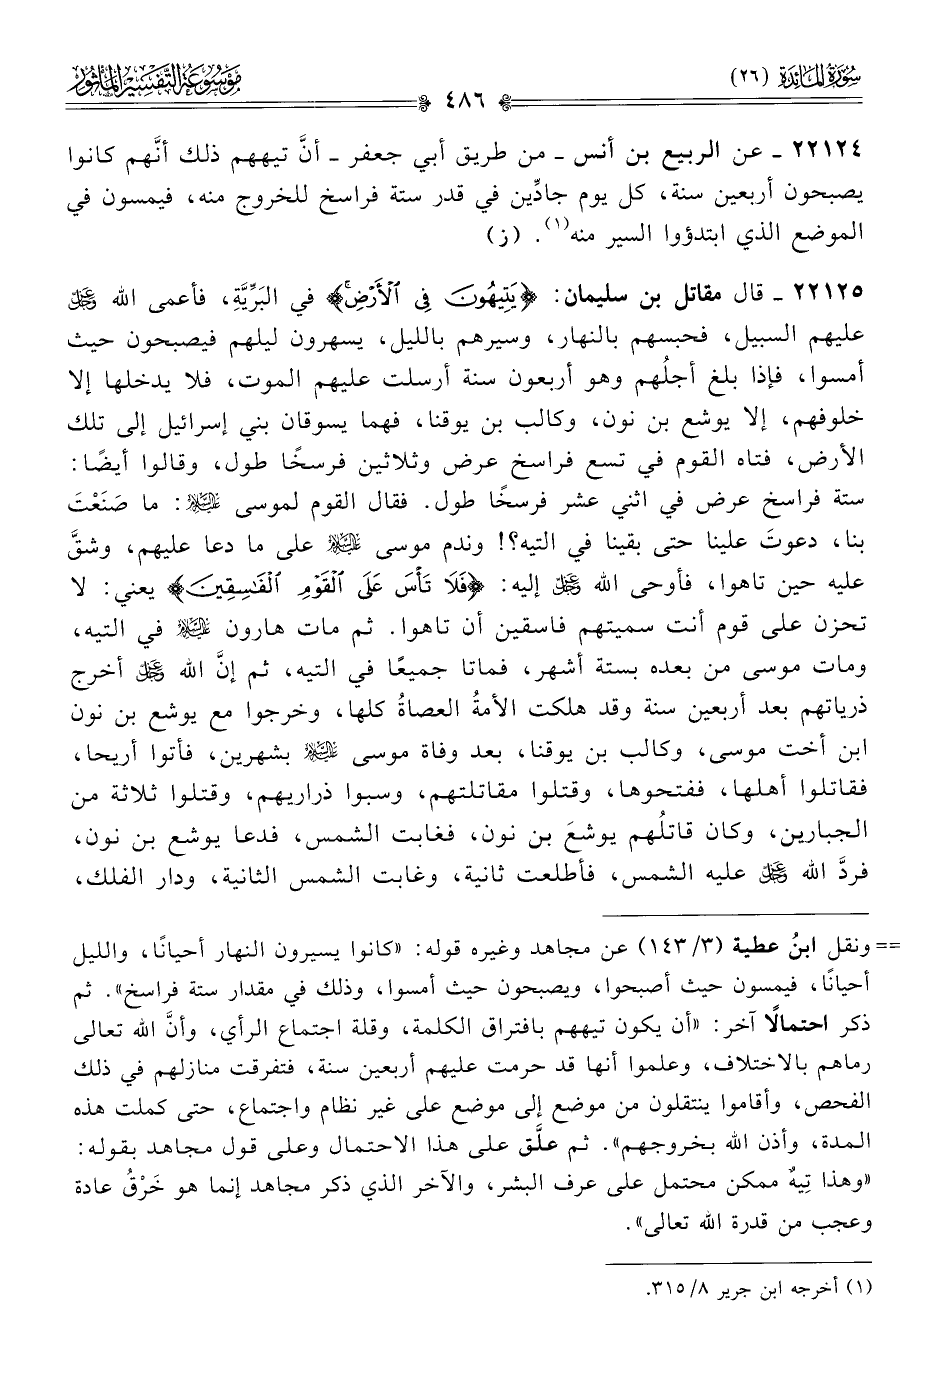 سورة المائدة (٢٦)
موسوعة التفسير المأثور
٤٨٦
٢٢١٢٤ ـ عن الربيع بن أنس ـ من طريق أبي جعفر ـ أنَّ تيههم ذلك أنَّهم كانوا
يصبحون أربعين سنة، كل يوم جادِّين في قدر ستة فراسخ للخروج منه، فيمسون في
الموضع الذي ابتدؤوا السير منه(١). (ز)
٢٢١٢٥ ـ قال مقاتل بن سليمان: ﴿يَتِيهُونَ فِي ٱلْأَرْضِۚ﴾ في البَرِّيَّةِ، فأعمى الله ﷿
عليهم السبيل، فحبسهم بالنهار، وسيرهم بالليل، يسهرون ليلهم فيصبحون حيث
أمسوا، فإذا بلغ أجلُهم وهو أربعون سنة أرسلت عليهم الموت، فلا يدخلها إلا
خلوفهم، إلا يوشع بن نون، وكالب بن يوقنا، فهما يسوقان بني إسرائيل إلى تلك
الأرض، فتاه القوم في تسع فراسخ عرض وثلاثين فرسخًا طول، وقالوا أيضًا:
ستة فراسخ عرض في اثني عشر فرسخًا طول. فقال القوم لموسى عليه السلام: ما صَنَعْتَ
بنا، دعوتَ علينا حتى بقينا في التيه؟! وندم موسى عليه السلام على ما دعا عليهم، وشقَّ
عليه حين تاهوا، فأوحى الله ﷿ إليه: ﴿فَلَا تَأْسَ عَلَى ٱلْقَوْمِ ٱلْفَٰسِقِينَ﴾ يعني: لا
تحزن على قوم أنت سميتهم فاسقين أن تاهوا. ثم مات هارون عليه السلام في التيه،
ومات موسى من بعده بستة أشهر، فماتا جميعًا في التيه، ثم إنَّ الله ﷿ أخرج
ذرياتهم بعد أربعين سنة وقد هلكت الأمةُ العصاةُ كلها، وخرجوا مع يوشع بن نون
ابن أخت موسى، وكالب بن يوقنا، بعد وفاة موسى عليه السلام بشهرين، فأتوا أريحا،
فقاتلوا أهلها، ففتحوها، وقتلوا مقاتلتهم، وسبوا ذراريهم، وقتلوا ثلاثة من
الجبارين، وكان قاتلُهم يوشعَ بن نون، فغابت الشمس، فدعا يوشع بن نون،
فردَّ الله ﷿ عليه الشمس، فأطلعت ثانية، وغابت الشمس الثانية، ودار الفلك،
== ونقل ابنُ عطية (٣/ ١٤٣) عن مجاهد وغيره قوله: «كانوا يسيرون النهار أحيانًا، والليل
أحيانًا، فيمسون حيث أصبحوا، ويصبحون حيث أمسوا، وذلك في مقدار ستة فراسخ». ثم
ذكر احتمالًا آخر: «أن يكون تيههم بافتراق الكلمة، وقلة اجتماع الرأي، وأنَّ الله تعالى
رماهم بالاختلاف، وعلموا أنها قد حرمت عليهم أربعين سنة، فتفرقت منازلهم في ذلك
الفحص، وأقاموا ينتقلون من موضع إلى موضع على غير نظام واجتماع، حتى كملت هذه
المدة، وأذن الله بخروجهم». ثم علَّق على هذا الاحتمال وعلى قول مجاهد بقوله:
«وهذا تِيهٌ ممكن محتمل على عرف البشر، والآخر الذي ذكر مجاهد إنما هو خَرْقُ عادة
وعجب من قدرة الله تعالى».
(١) أخرجه ابن جرير ٨/ ٣١٥.